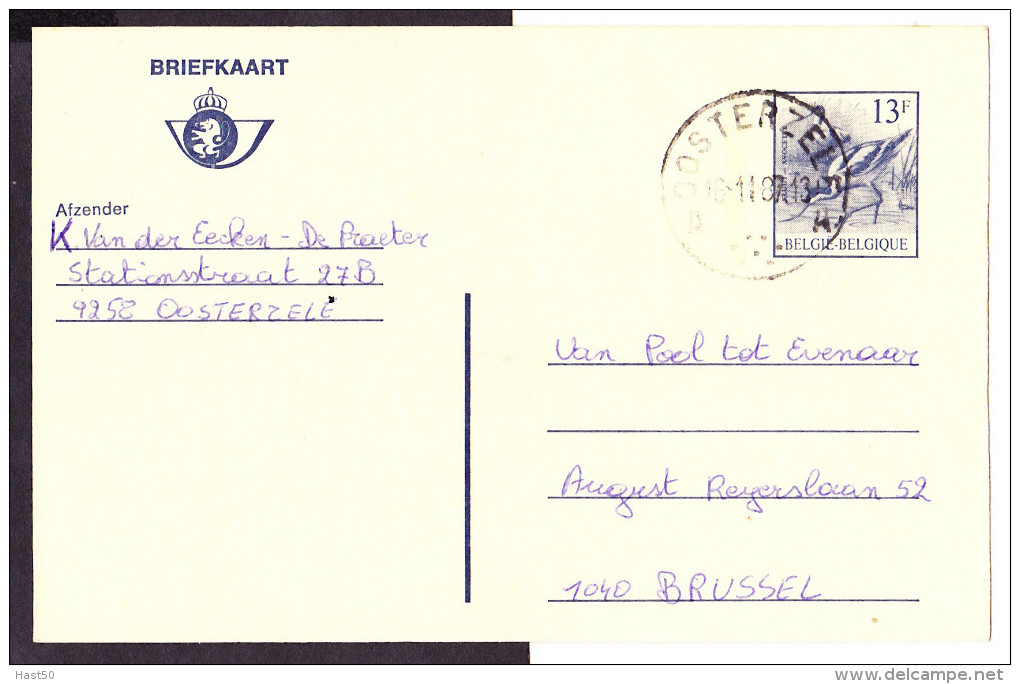 BRIEFKAART
13F
OOSTERZELE
16-11 87 13
A A
BELGIE-BELGIQUE
Afzender
K Van der Eecken - De Praeter
Stationsstraat 27B
9258 OOSTERZELE
Van Pool tot Evenaar
August Reyerslaan 52
1040 BRUSSEL
Hast50
delcampe.net